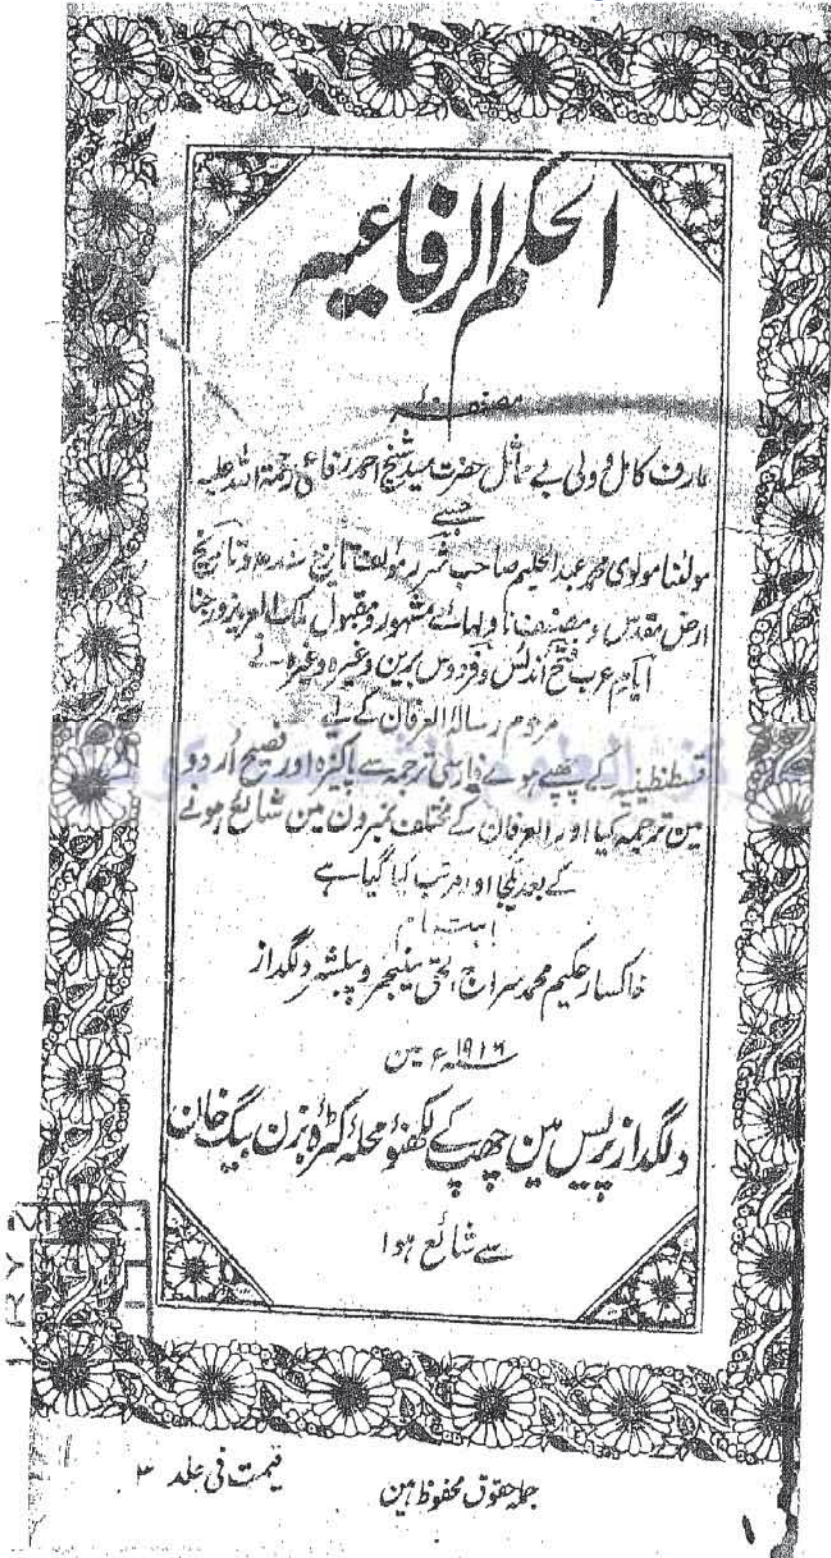 الحکم الرفاعیہ
مصنفہ
عارف کامل و ولی بے مثال حضرت سید شیخ احمد رفاعی رحمۃ اللہ علیہ
جسے
مولٰنا مولوی محمد عبدالحلیم صاحب شرر مؤلف تاریخ سندھ و تاریخ
ارض مقدس و مصنف ناولہائے مشہور و مقبول ملک العزیز ورجنا
ایام عرب فتح اندلس و فردوس برین وغیرہ وغیرہ نے
مرحوم رسالۂ العرفان کے لیے
قسطنطینیہ کے چھپے ہوے فارسی ترجمہ سے پاکیزہ اور فصیح اُردو
مین ترجمہ کیا اور العرفان کے مختلف نمبرون مین شائع ہونے
کے بعد یکجا اور مرتب کیا گیا ہے
باہتمام
خاکسار حکیم محمد سراج الحق مینیجر و پبلشر دلگداز
سنہ ۱۹۱۶ء مین
دلگداز پریس مین چھپ کے لکھنؤ محلہ کٹرۂ بزن بیگ خان
سے شائع ہوا
جملہ حقوق محفوظ ہین
قیمت فی جلد
۱